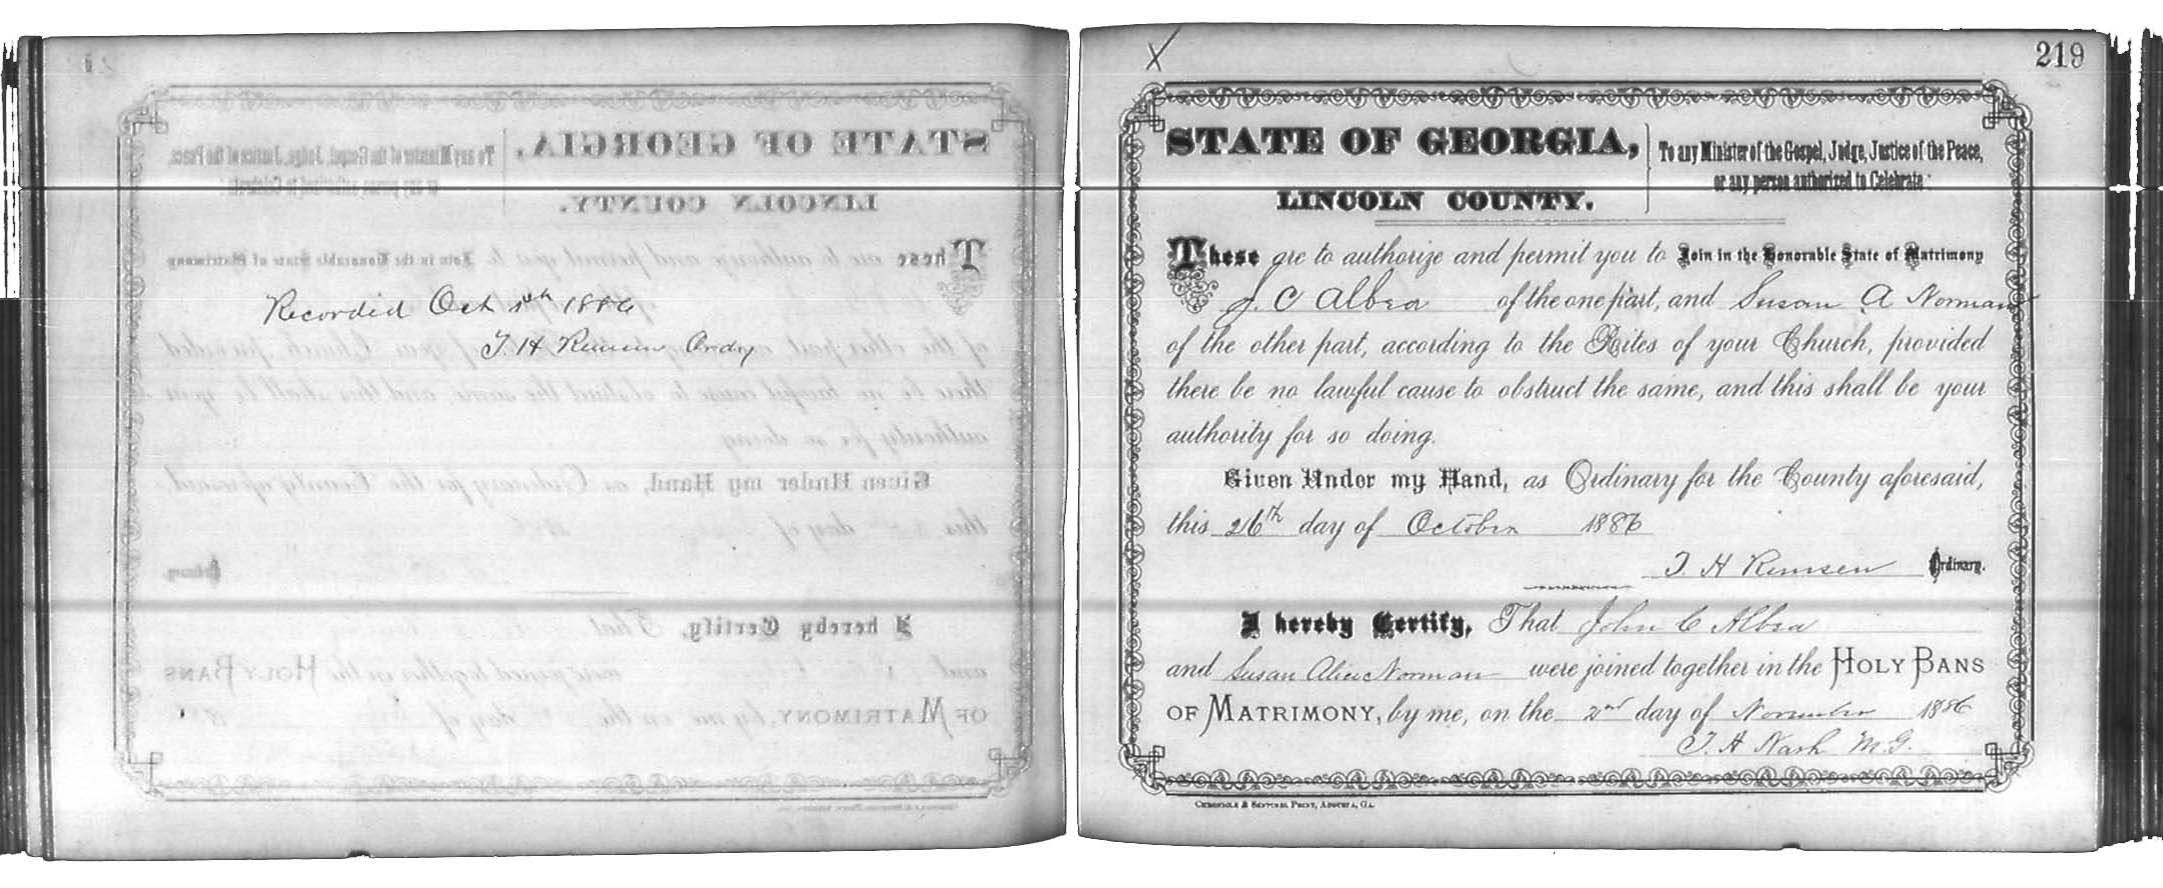 Recorded Oct 1886
T. H Remsen Ordy
X
219
STATE OF GEORGIA,
LINCOLN COUNTY.
To any Minister of the Gospel, Judge, Justice of the Peace,
or any person authorized to Celebrate:
These are to authorize and permit you to Join in the Honorable State of Matrimony
J. C Albea of the one part, and Susan A Norman
of the other part, according to the Rites of your Church, provided
there be no lawful cause to obstruct the same, and this shall be your
authority for so doing.
Given Under my Hand, as Ordinary for the County aforesaid,
this 26th day of October 1886
T. H Remsen Ordinary.
I hereby Certify, That John C Albea
and Susan Alice Norman were joined together in the HOLY BANS
OF MATRIMONY, by me, on the 2nd day of November 1886
T. H Nash M.G.
CHRONICLE & SENTINEL PRINT, AUGUSTA, GA.